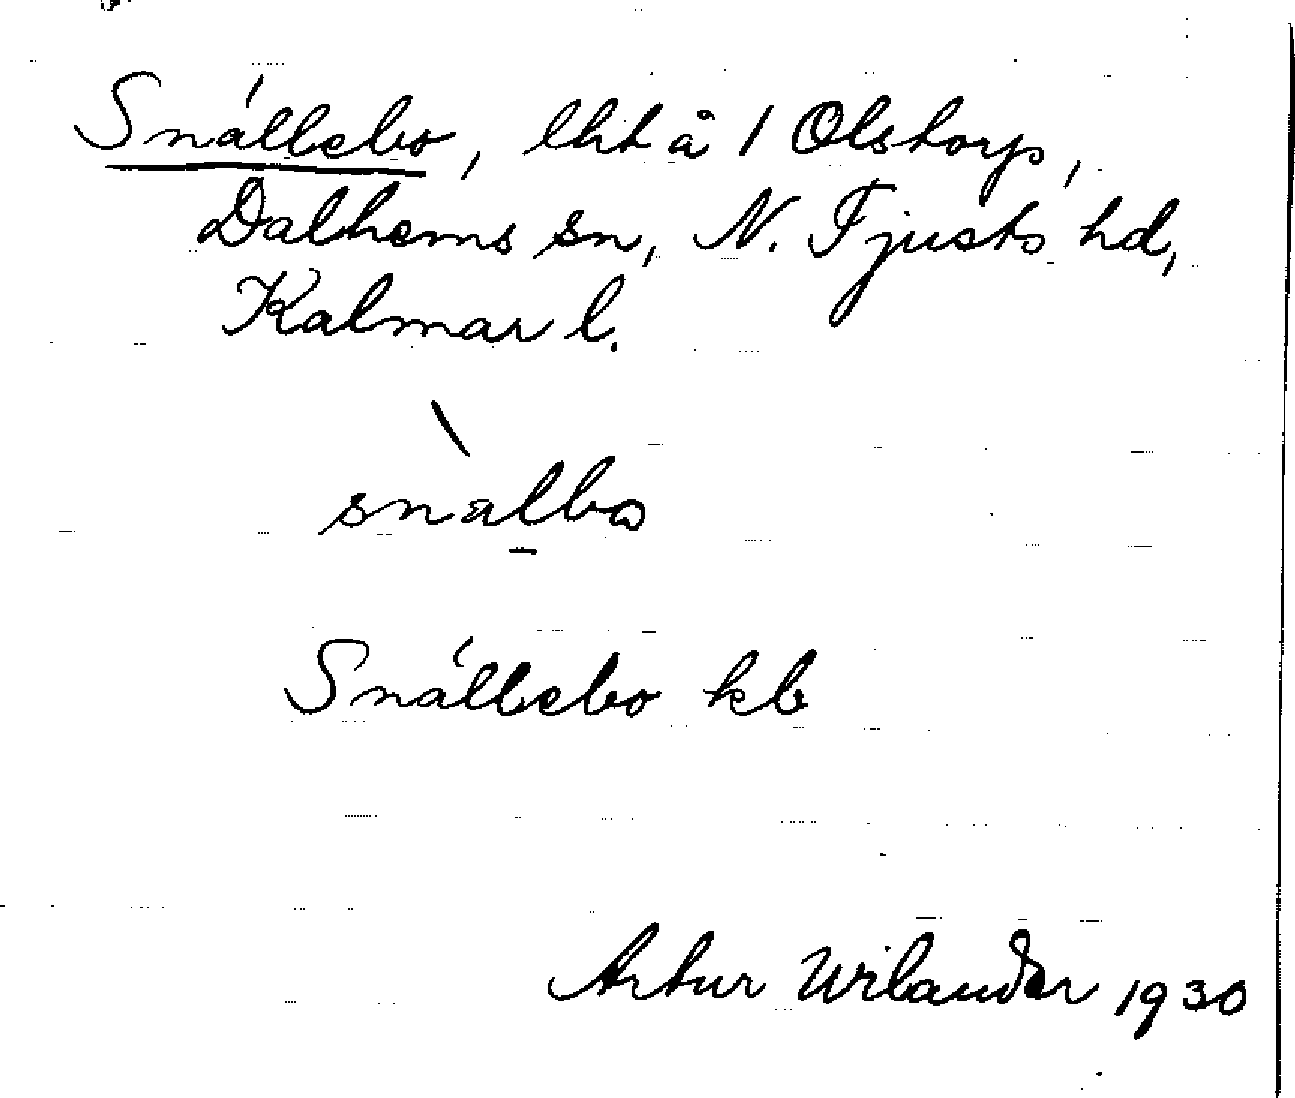 Snállebo, lht å 1 Olstorp,
Dalhems sn, N. Tjusts hd,
Kalmar l.
snàlbo
Snállebo kb
Artur Wilander 1930